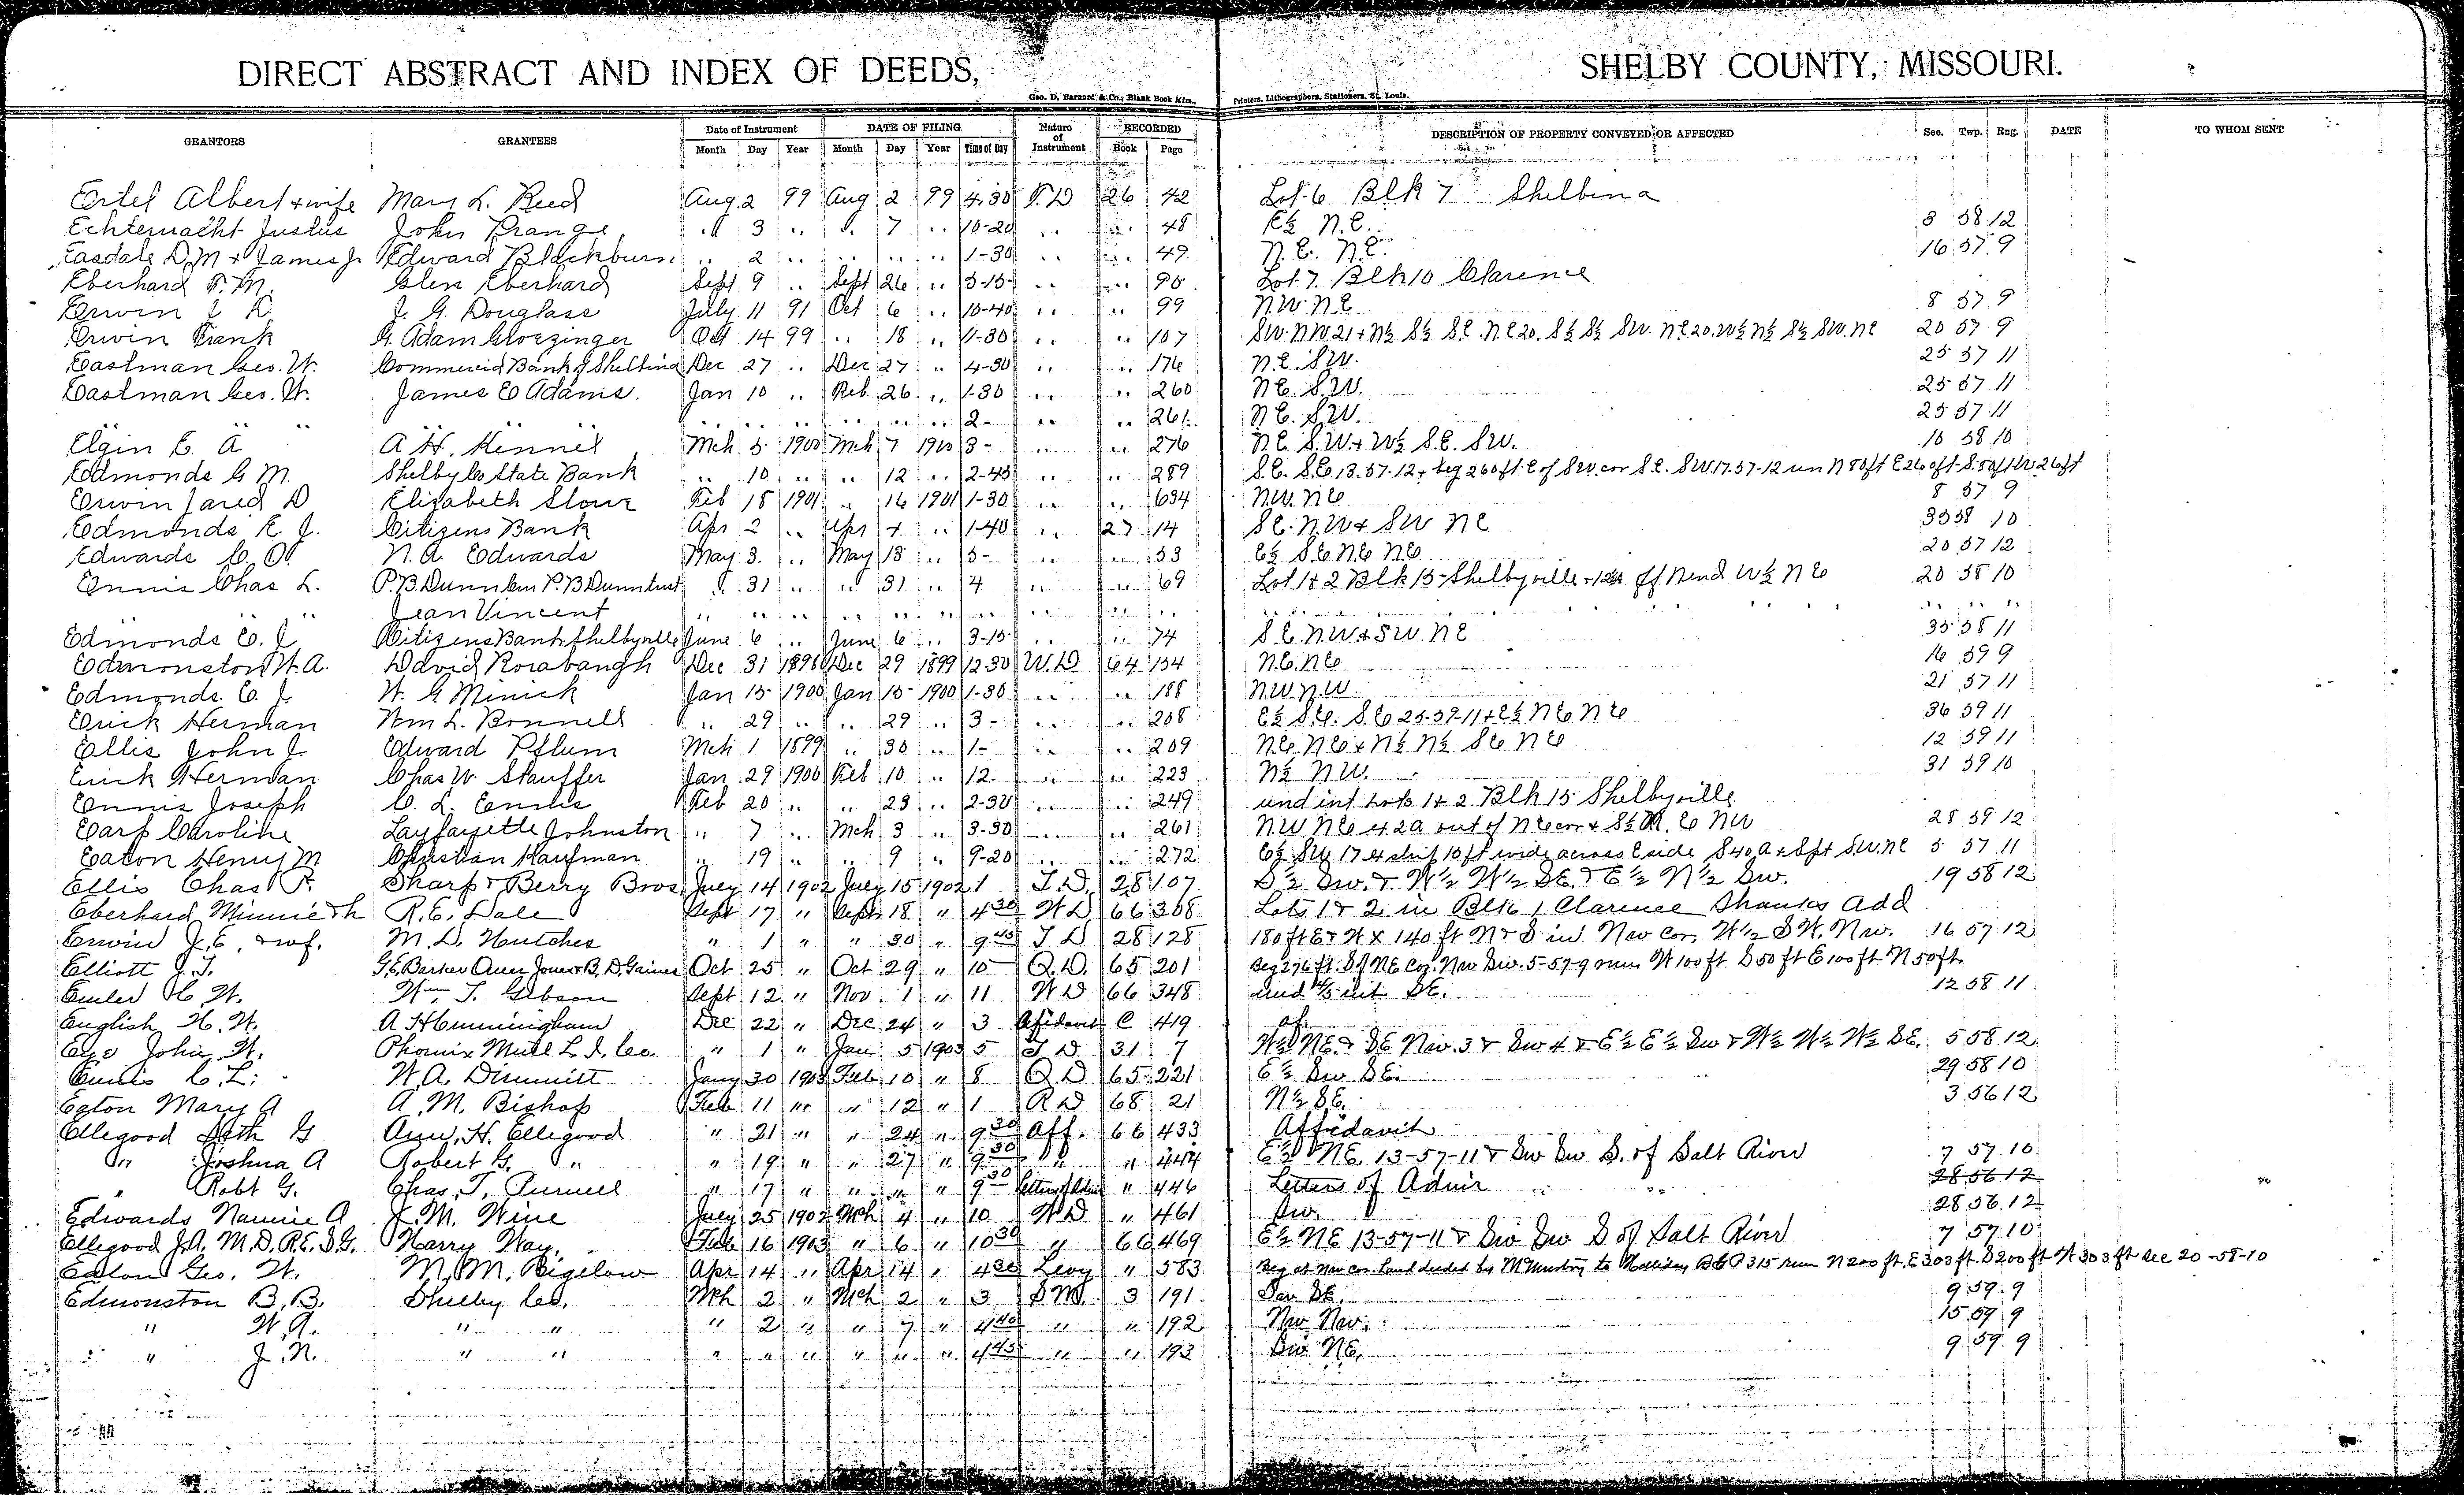 DIRECT ABSTRACT AND INDEX OF DEEDS, SHELBY COUNTY, MISSOURI.
Geo. D. Barnard & Co., Blank Book Mfrs., Printers, Lithographers, Stationers, St. Louis.
GRANTORS GRANTEES Date of Instrument DATE OF FILING Nature of Instrument RECORDED DESCRIPTION OF PROPERTY CONVEYED OR AFFECTED Sec. Twp. Rng. DATE TO WHOM SENT
Month Day Year Month Day Year Time of Day Book Page
Ertel Albert + wife Mary L. Reed Aug 2 99 Aug 2 99 4.30 T.D 26 42 Lot 6 Blk 7 Shelbina
Echternacht Justus John Prange " 3 " " 7 " 10-20 " " 48 E½ N.E. 3 58 12
Easdale D.M + James Jr Edward Blackburn " 2 " " " " 1-30 " " 49 N.E. N.E. 16 57 9
Eberhard F. M. Glen Eberhard Sept 9 " Sept 26 " 3-15 " " 95 Lot 7 Blk 10 Clarence
Erwin J D J. G. Douglass July 11 91 Oct 6 " 10-40 " " 99 N.W. N.E 8 57 9
Erwin Frank G. Adam Gloezinger Oct 14 99 " 18 " 1-30 " " 107 SW. NW 21 + N½ S½ S.E. N.E 20. S½ S½ SW. N.E 20. W½ N½ S½ SW. NE 20 57 9
Eastman Geo. W. Commercial Bank of Shelbina Dec 27 " Dec 27 " 4-30 " " 176 N.E. SW. 25 57 11
Eastman Geo. W. James E Adams. Jan 10 " Feb. 26 " 1-30 " " 260 N.E. S.W. 25 57 11
" " " " " " " " " " 2- " " 261 N.E. S.W. 25 57 11
Elgin E. A A. H. Kennel Mch 5 1900 Mch 7 1900 3- " " 276 N.E. S.W. + W½ S.E. SW. 10 58 10
Edmonds G M. Shelby Co State Bank " 10 " " 12 " 2-45 " " 289 S.E. S.E 13.57-12 + beg 260 ft E of SW. cor S.E. SW 17.57-12 run N 80 ft E 260 ft S. 80 ft W 26 ft
Erwin Jared D Elizabeth Stour Feb 15 1901 " 16 1901 1-30 " " 634 N.W. N.E 8 57 9
Edmonds E. J. Citizens Bank Apr 2 " Apr 4 " 1-40 " 27 14 S.E. N.W + SW NE 33 58 10
Edwards C. O. N. A. Edwards May 3. " May 13 " 5- " " 53 E½ S.E. N.E. N.E 20 57 12
Ennis Chas L. P.B. Dunn P.B Dunn trust " 31 " " 31 " 4 " " 69 Lot 1 + 2 Blk 15 Shelbyville + off N end W½ N E 20 58 10
" " Jean Vincent " " " " " " " " " " " " " "
Edmonds E. J Citizens Bank Shelbyville June 6 " June 6 " 3-15 " " 74 S.E. N.W + SW. N.E 35 58 11
Edmonston W. A. David Rorabaugh Dec 31 1898 Dec 29 1899 12 30 W.D 64 134 N.E. N.E 16 59 9
Edmonds. E. J. W. G Minick Jan 15 1900 Jan 15 1900 1-30 " " 188 N.W. N.W. 21 57 11
Erick Herman Wm L. Bonnell " 29 " " 29 " 3- " " 208 E½ S.E. S.E 25-59-11 + E½ N.E. N.E 36 59 11
Ellis John J. Edward Pflum Mch 1 1899 " 30 " 1- " " 209 N.E. N.E + N½ N½ S.E N.E 12 59 11
Erick Herman Chas W. Stauffer Jan 29 1900 Feb 10 " 12. " " 223 N½ N.W. 31 59 10
Ennis Joseph C. L. Ennis Feb 20 " " 23 " 2-30 " " 249 und int Lots 1 + 2 Blk 15 Shelbyville
Earp Caroline Layfayette Johnston " 7 " Mch 3 " 3-30 " " 261 N.W N.E 42a out of N E cor + S½ N. E NW 28 59 12
Eaton Henry M Christian Kaufman " 19 " " 9 " 9-20 " " 272 E½ SW 17 + strip 15 ft wide across E side S 40 a + 8 ft S.W. NE 5 57 11
Ellis Chas F. Sharp + Berry Bros. July 14 1902 July 15 1902 1 T.D. 28 107 S½ Sw. + N½ W½ SE. + E½ N½ Sw. 19 58 12
Eberhard Minnie + h R. E. Dale Sept 17 " Sept 18 " 4 30 W D 66 308 Lots 1 + 2 in Blk 1 Clarence Shanks Add
Erwin J. E. + wf. M. D. Hutches " 1 " " 30 " 9 45 T D 28 128 180 ft E + W X 140 ft N + S in Nw cor. W½ S W. Nw. 16 57 12
Elliott J. T. G.E. Barker Oner Jones + B.D. Gaines Oct 25 " Oct 29 " 10 Q. D. 65 201 Beg 276 ft. S of NE cor. Nw Sw. 5-57-9 runs W 100 ft S 50 ft E 100 ft N 50 ft.
Ember H. W. Wm. T. Gibson Sept 12 " Nov 1 " 11 W D 66 348 und int SE. 12 58 11
English H. W. A H Cunningham Dec 22 " Dec 24 " 3 Afidavit C 419 af.
Eyo John W. Phoenix Mutl L. I. Co. " 1 " Jan 5 1903 5 T D 31 7 W½ NE. + SE Nw. 3 + Sw 4 + E½ E½ Sw + W½ W½ W½ SE. 5 58 12
Ennis C. L. W. A. Dimmitt Jany 30 1903 Feb 10 " 8 Q D 65 221 E½ Sw SE. 29 58 10
Eaton Mary A A. M. Bishop Feb 11 " " 12 " 1 R D 68 21 N½ SE. 3 56 12
Ellegood Seth G Ann. H. Ellegood " 21 " " 24 " 9 30 Aff. 66 433 Affidavit
" Joshua A Robert G. " " 19 " " 27 " 9 30 " " 444 E½ NE. 13-57-11 + Sw Sw S. of Salt River 7 57. 10
" Robt G. Chas. T. Purnell " 17 " " " " 9 30 Letters of Admr " 446 Letters of Admr 28 56 12
Edwards Nannie A J. M. Wine July 25 1902 Mch 4 " 10 W D " 461 Sw. 28 56. 12
Ellegood J.A. M.D. R.E. S.G. Harry Hay. Feb 16 1903 " 6 " 10 30 " 66 469 E½ NE 13-57-11 + Sw Sw S of Salt River 7 57 10
Eaton Geo. W. M. M. Bigelow Apr 14 " Apr 14 " 4 30 Levy " 583 Beg at Nw cor. Land deeded by to Holliday B 6 P 315 run N 200 ft. E 303 ft. S 200 ft W 303 ft Sec 20-58-10
Edmonston B. B. Shelby Co. Mch 2 " Mch 2 " 3 S M. 3 191 Sw SE. 9 59. 9
" W. A. " " " 2 " " 7 " 4 40 " " 192 Nw Nw. 15 59 9
" J. N. " " " " " " " " 4 45 " " 193 Sw NE. 9 59. 9